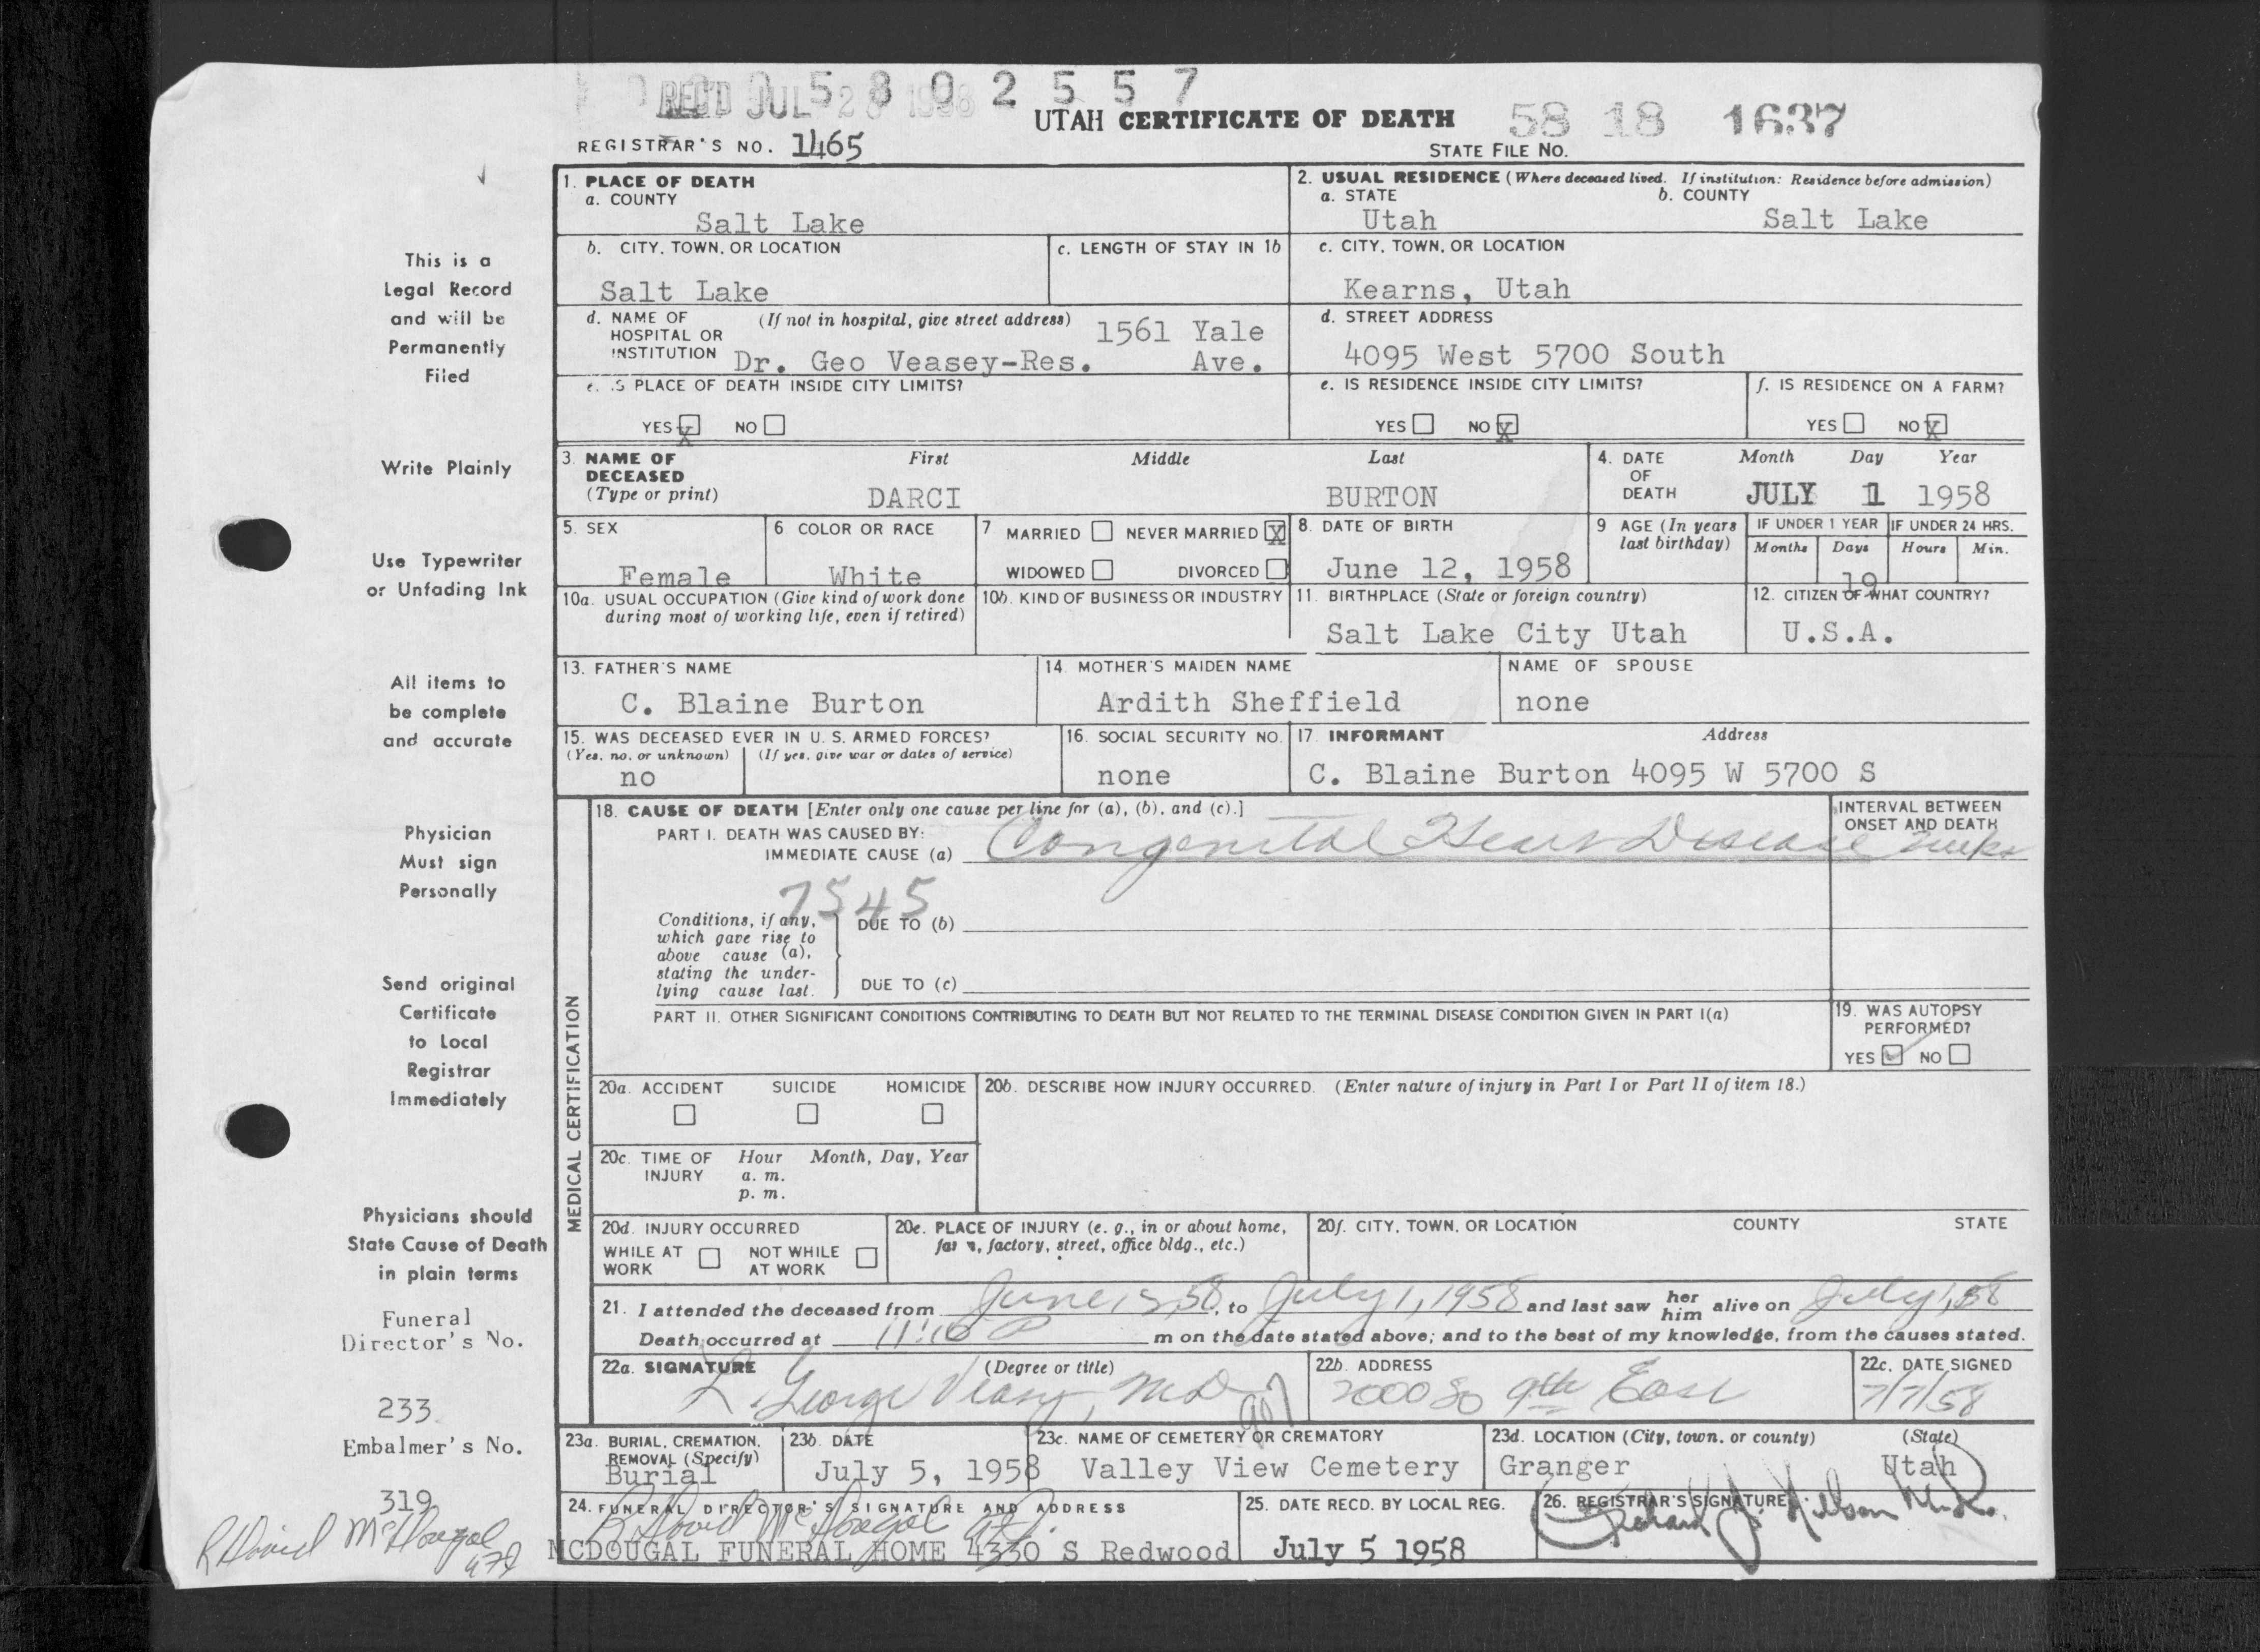 REC'D JUL 28 1958
5802557
UTAH CERTIFICATE OF DEATH 58 18 1637
REGISTRAR'S NO. 1465 STATE FILE NO.
This is a
Legal Record
and will be
Permanently
Filed
Write Plainly
Use Typewriter
or Unfading Ink
All items to
be complete
and accurate
Physician
Must sign
Personally
Send original
Certificate
to Local
Registrar
Immediately
Physicians should
State Cause of Death
in plain terms
Funeral
Director's No.
233
Embalmer's No.
319
R David McDougal
1. PLACE OF DEATH
a. COUNTY
Salt Lake
2. USUAL RESIDENCE (Where deceased lived. If institution: Residence before admission)
a. STATE b. COUNTY
Utah Salt Lake
b. CITY, TOWN, OR LOCATION
Salt Lake
c. LENGTH OF STAY IN 1b
c. CITY, TOWN, OR LOCATION
Kearns, Utah
d. NAME OF (If not in hospital, give street address)
HOSPITAL OR
INSTITUTION
1561 Yale
Dr. Geo Veasey-Res. Ave.
d. STREET ADDRESS
4095 West 5700 South
e. IS PLACE OF DEATH INSIDE CITY LIMITS?
YES X NO
e. IS RESIDENCE INSIDE CITY LIMITS?
YES NO X
f. IS RESIDENCE ON A FARM?
YES NO X
3. NAME OF First Middle Last
DECEASED
(Type or print)
DARCI BURTON
4. DATE Month Day Year
OF
DEATH JULY 1 1958
5. SEX
Female
6 COLOR OR RACE
White
7 MARRIED NEVER MARRIED X
WIDOWED DIVORCED
8. DATE OF BIRTH
June 12, 1958
9 AGE (In years
last birthday)
IF UNDER 1 YEAR IF UNDER 24 HRS.
Months Days Hours Min.
19
10a. USUAL OCCUPATION (Give kind of work done
during most of working life, even if retired)
10b. KIND OF BUSINESS OR INDUSTRY
11. BIRTHPLACE (State or foreign country)
Salt Lake City Utah
12. CITIZEN OF WHAT COUNTRY?
U.S.A.
13. FATHER'S NAME
C. Blaine Burton
14. MOTHER'S MAIDEN NAME
Ardith Sheffield
NAME OF SPOUSE
none
15. WAS DECEASED EVER IN U. S. ARMED FORCES?
(Yes, no, or unknown) (If yes, give war or dates of service)
no
16. SOCIAL SECURITY NO.
none
17. INFORMANT Address
C. Blaine Burton 4095 W 5700 S
MEDICAL CERTIFICATION
18. CAUSE OF DEATH [Enter only one cause per line for (a), (b), and (c).]
PART I. DEATH WAS CAUSED BY:
IMMEDIATE CAUSE (a) Congenital Heart Disease
INTERVAL BETWEEN
ONSET AND DEATH
7545
Conditions, if any,
which gave rise to
above cause (a),
stating the under-
lying cause last.
DUE TO (b)
DUE TO (c)
PART II. OTHER SIGNIFICANT CONDITIONS CONTRIBUTING TO DEATH BUT NOT RELATED TO THE TERMINAL DISEASE CONDITION GIVEN IN PART I(a)
19. WAS AUTOPSY
PERFORMED?
YES ✓ NO
20a. ACCIDENT SUICIDE HOMICIDE
20b. DESCRIBE HOW INJURY OCCURRED. (Enter nature of injury in Part I or Part II of item 18.)
20c. TIME OF Hour Month, Day, Year
INJURY a. m.
p. m.
20d. INJURY OCCURRED
WHILE AT NOT WHILE
WORK AT WORK
20e. PLACE OF INJURY (e. g., in or about home,
farm, factory, street, office bldg., etc.)
20f. CITY, TOWN, OR LOCATION COUNTY STATE
21. I attended the deceased from June , 58, to July 1, 1958 and last saw her him alive on July 1, 58
Death occurred at 11:10 P m on the date stated above; and to the best of my knowledge, from the causes stated.
22a. SIGNATURE (Degree or title)
L. George Veasy, MD
22b. ADDRESS
2000 So 9th East
22c. DATE SIGNED
7/7/58
23a. BURIAL, CREMATION,
REMOVAL (Specify)
Burial
23b. DATE
July 5, 1958
23c. NAME OF CEMETERY OR CREMATORY
Valley View Cemetery
23d. LOCATION (City, town, or county) (State)
Granger Utah
24. FUNERAL DIRECTOR'S SIGNATURE AND ADDRESS
R David McDougal
MCDOUGAL FUNERAL HOME 4330 S Redwood
25. DATE RECD. BY LOCAL REG.
July 5 1958
26. REGISTRAR'S SIGNATURE